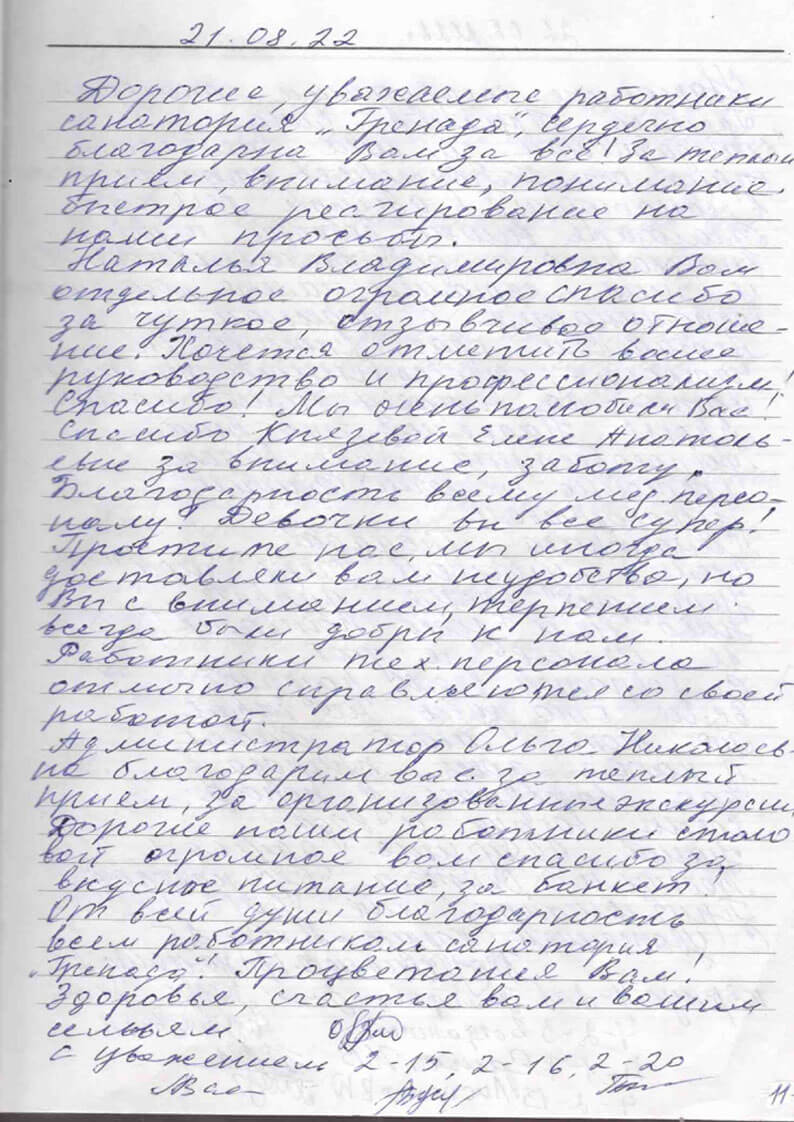 21.08.22
Дорогие, уважаемые работники
санатория „Гренада" сердечно
благодарна Вам за всё! За теплый
прием, внимание, понимание.
быстрое реагирование на
наши просьбы.
Наталья Владимировна Вам
отдельное огромное спасибо
за чуткое, отзывчивое отноше-
ние. Хочется отметить ваше
руководство и профессионализм!
Спасибо! Мы очень полюбили Вас!
Спасибо Князевой Елене Анатоль-
евне за внимание, заботу.
Благодарность всему мед. персо-
налу! Девочки вы все супер!
Простите нас, мы иногда
доставляли вам неудобства, но
Вы с вниманием, терпением
всегда были добры к нам.
Работники тех. персонала
отлично справляются со своей
работой.
Администратор Ольга Николаев-
на благодарим вас за теплый
прием, за организованные экскурсии.
Дорогие наши работники столо
вой огромное вам спасибо за
вкусное питание, за банкет!
От всей души благодарность
всем работникам санатория
„Гренада"! Процветания Вам!
Здоровья, счастья вам и вашим
семьям.
с уважением 2-15, 2-16, 2-20
11